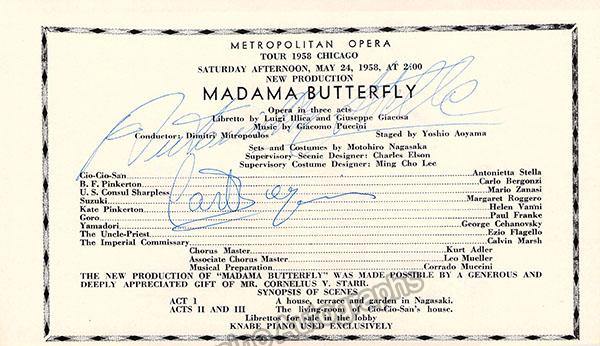 METROPOLITAN OPERA
TOUR 1958 CHICAGO
SATURDAY AFTERNOON, MAY 24, 1958, AT 2:00
NEW PRODUCTION
MADAMA BUTTERFLY
Opera in three acts
Libretto by Luigi Illica and Giuseppe Giacosa
Music by Giacomo Puccini
Conductor: Dimitri Mitropoulos Staged by Yoshio Aoyama
Sets and Costumes by Motohiro Nagasaka
Supervisory Scenic Designer: Charles Elson
Supervisory Costume Designer: Ming Cho Lee
Cio-Cio-San Antonietta Stella
B. F. Pinkerton Carlo Bergonzi
U. S. Consul Sharpless Mario Zanasi
Suzuki Margaret Roggero
Kate Pinkerton Helen Vanni
Goro Paul Franke
Yamadori George Cehanovsky
The Uncle-Priest Ezio Flagello
The Imperial Commissary Calvin Marsh
Chorus Master Kurt Adler
Associate Chorus Master Leo Mueller
Musical Preparation Corrado Muccini
THE NEW PRODUCTION OF "MADAMA BUTTERFLY" WAS MADE POSSIBLE BY A GENEROUS AND
DEEPLY APPRECIATED GIFT OF MR. CORNELIUS V. STARR.
SYNOPSIS OF SCENES
ACT I A house, terrace and garden in Nagasaki.
ACTS II and III The living-room of Cio-Cio-San's house.
Librettos for sale in the lobby
KNABE PIANO USED EXCLUSIVELY
Antonietta Stella
Autographs